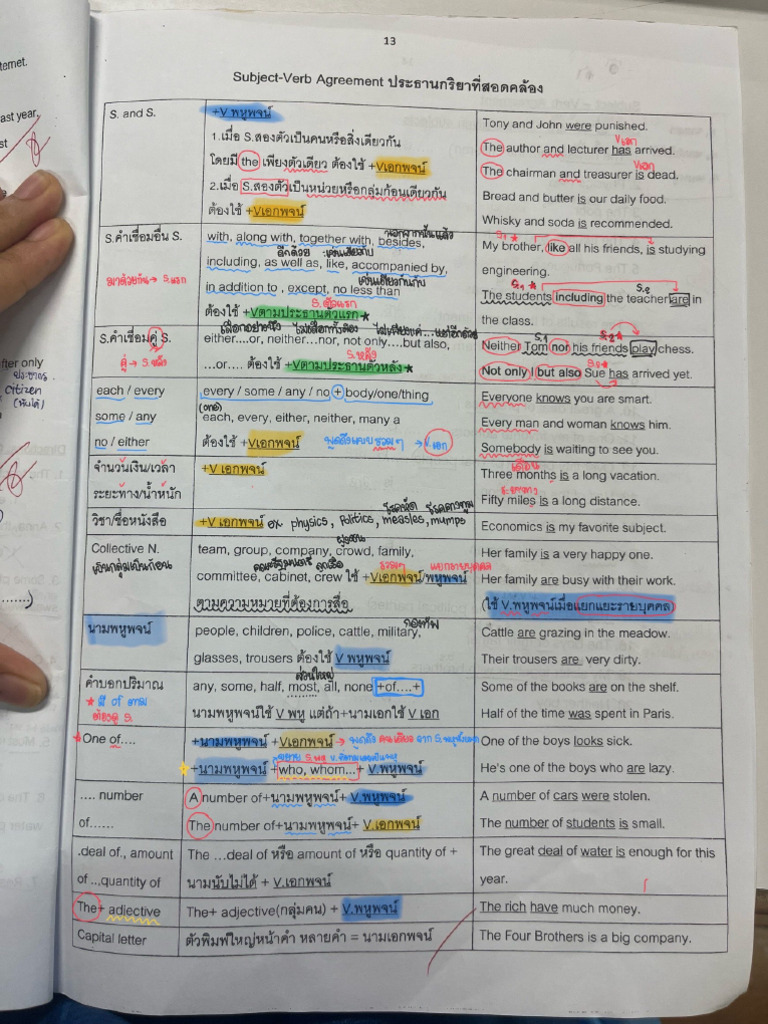 13
Subject-Verb Agreement ประธานกริยาที่สอดคล้อง
ternet.
ast year,
st
fter only
ประชากร
citizen
S. and S.
+V พหูพจน์
1.เมื่อ S.สองตัวเป็นคนหรือสิ่งเดียวกัน
โดยมี the เพียงตัวเดียว ต้องใช้ +Vเอกพจน์
2.เมื่อ S.สองตัวเป็นหน่วยหรือกลุ่มก้อนเดียวกัน
ต้องใช้ +Vเอกพจน์
Tony and John were punished.
Vเอก
The author and lecturer has arrived.
Vเอก
The chairman and treasurer is dead.
Bread and butter is our daily food.
Whisky and soda is recommended.
S.คำเชื่อมอื่น S.
มาด้วยกัน → S.แรก
with, along with, together with, besides,
นอกจากนั้นแล้ว
including, as well as, like, accompanied by,
in addition to , except, no less than
S.ตัวแรก
ต้องใช้ +Vตามประธานตัวแรก★
S.1 ★
My brother, like all his friends, is studying
engineering.
S.1 ★ S.2
The students including the teacher are in
the class.
S.คำเชื่อมคู่ S.
คู่ → S.หลัง
either....or, neither...nor, not only....but also,
S.หลัง
...or.... ต้องใช้ +Vตามประธานตัวหลัง★
S.1 S.2 ★
Neither Tom nor his friends play chess.
Not only I but also Sue has arrived yet.
each / every
some / any
no / either
every / some / any / no + body/one/thing
(one)
each, every, either, neither, many a
ต้องใช้ +Vเอกพจน์ พูดถึงแบบรวมๆ → V.เอก
Everyone knows you are smart.
Every man and woman knows him.
Somebody is waiting to see you.
จำนวนเงิน/เวลา
ระยะทาง/น้ำหนัก
+V เอกพจน์
เดือน
Three months is a long vacation.
ระยะทาง
Fifty miles is a long distance.
วิชา/ชื่อหนังสือ
+V เอกพจน์ ex physics, Politics, measles, mumps
โรคหัด โรคคางทูม
Economics is my favorite subject.
Collective N.
team, group, company, crowd, family,
ฝูงชน
คณะรัฐมนตรี ลูกเรือ รวมๆ แยกรายบุคคล
committee, cabinet, crew ใช้ +Vเอกพจน์/พหูพจน์
ตามความหมายที่ต้องการสื่อ
Her family is a very happy one.
Her family are busy with their work.
(ใช้ V.พหูพจน์เมื่อแยกแยะรายบุคคล)
นามพหูพจน์
people, children, police, cattle, military,
กองทัพ
glasses, trousers ต้องใช้ V พหูพจน์
Cattle are grazing in the meadow.
Their trousers are very dirty.
คำบอกปริมาณ
★ มี of ตาม
ต้องดู S.
ส่วนใหญ่
any, some, half, most, all, none +of....+
นามพหูพจน์ใช้ V พหู แต่ถ้า+นามเอกใช้ V เอก
Some of the books are on the shelf.
Half of the time was spent in Paris.
★One of....
+นามพหูพจน์ +Vเอกพจน์
+นามพหูพจน์ +who, whom...+ V.พหูพจน์
One of the boys looks sick.
He's one of the boys who are lazy.
.... number
of......
A number of+นามพหูพจน์+V.พหูพจน์
The number of+นามพหูพจน์+ V.เอกพจน์
A number of cars were stolen.
The number of students is small.
.deal of., amount
of ..,quantity of
The ...deal of หรือ amount of หรือ quantity of +
นามนับไม่ได้ + V.เอกพจน์
The great deal of water is enough for this
year.
The+ adjective
The+ adjective(กลุ่มคน) + V.พหูพจน์
The rich have much money.
Capital letter
ตัวพิมพ์ใหญ่หน้าคำ หลายคำ = นามเอกพจน์
The Four Brothers is a big company.